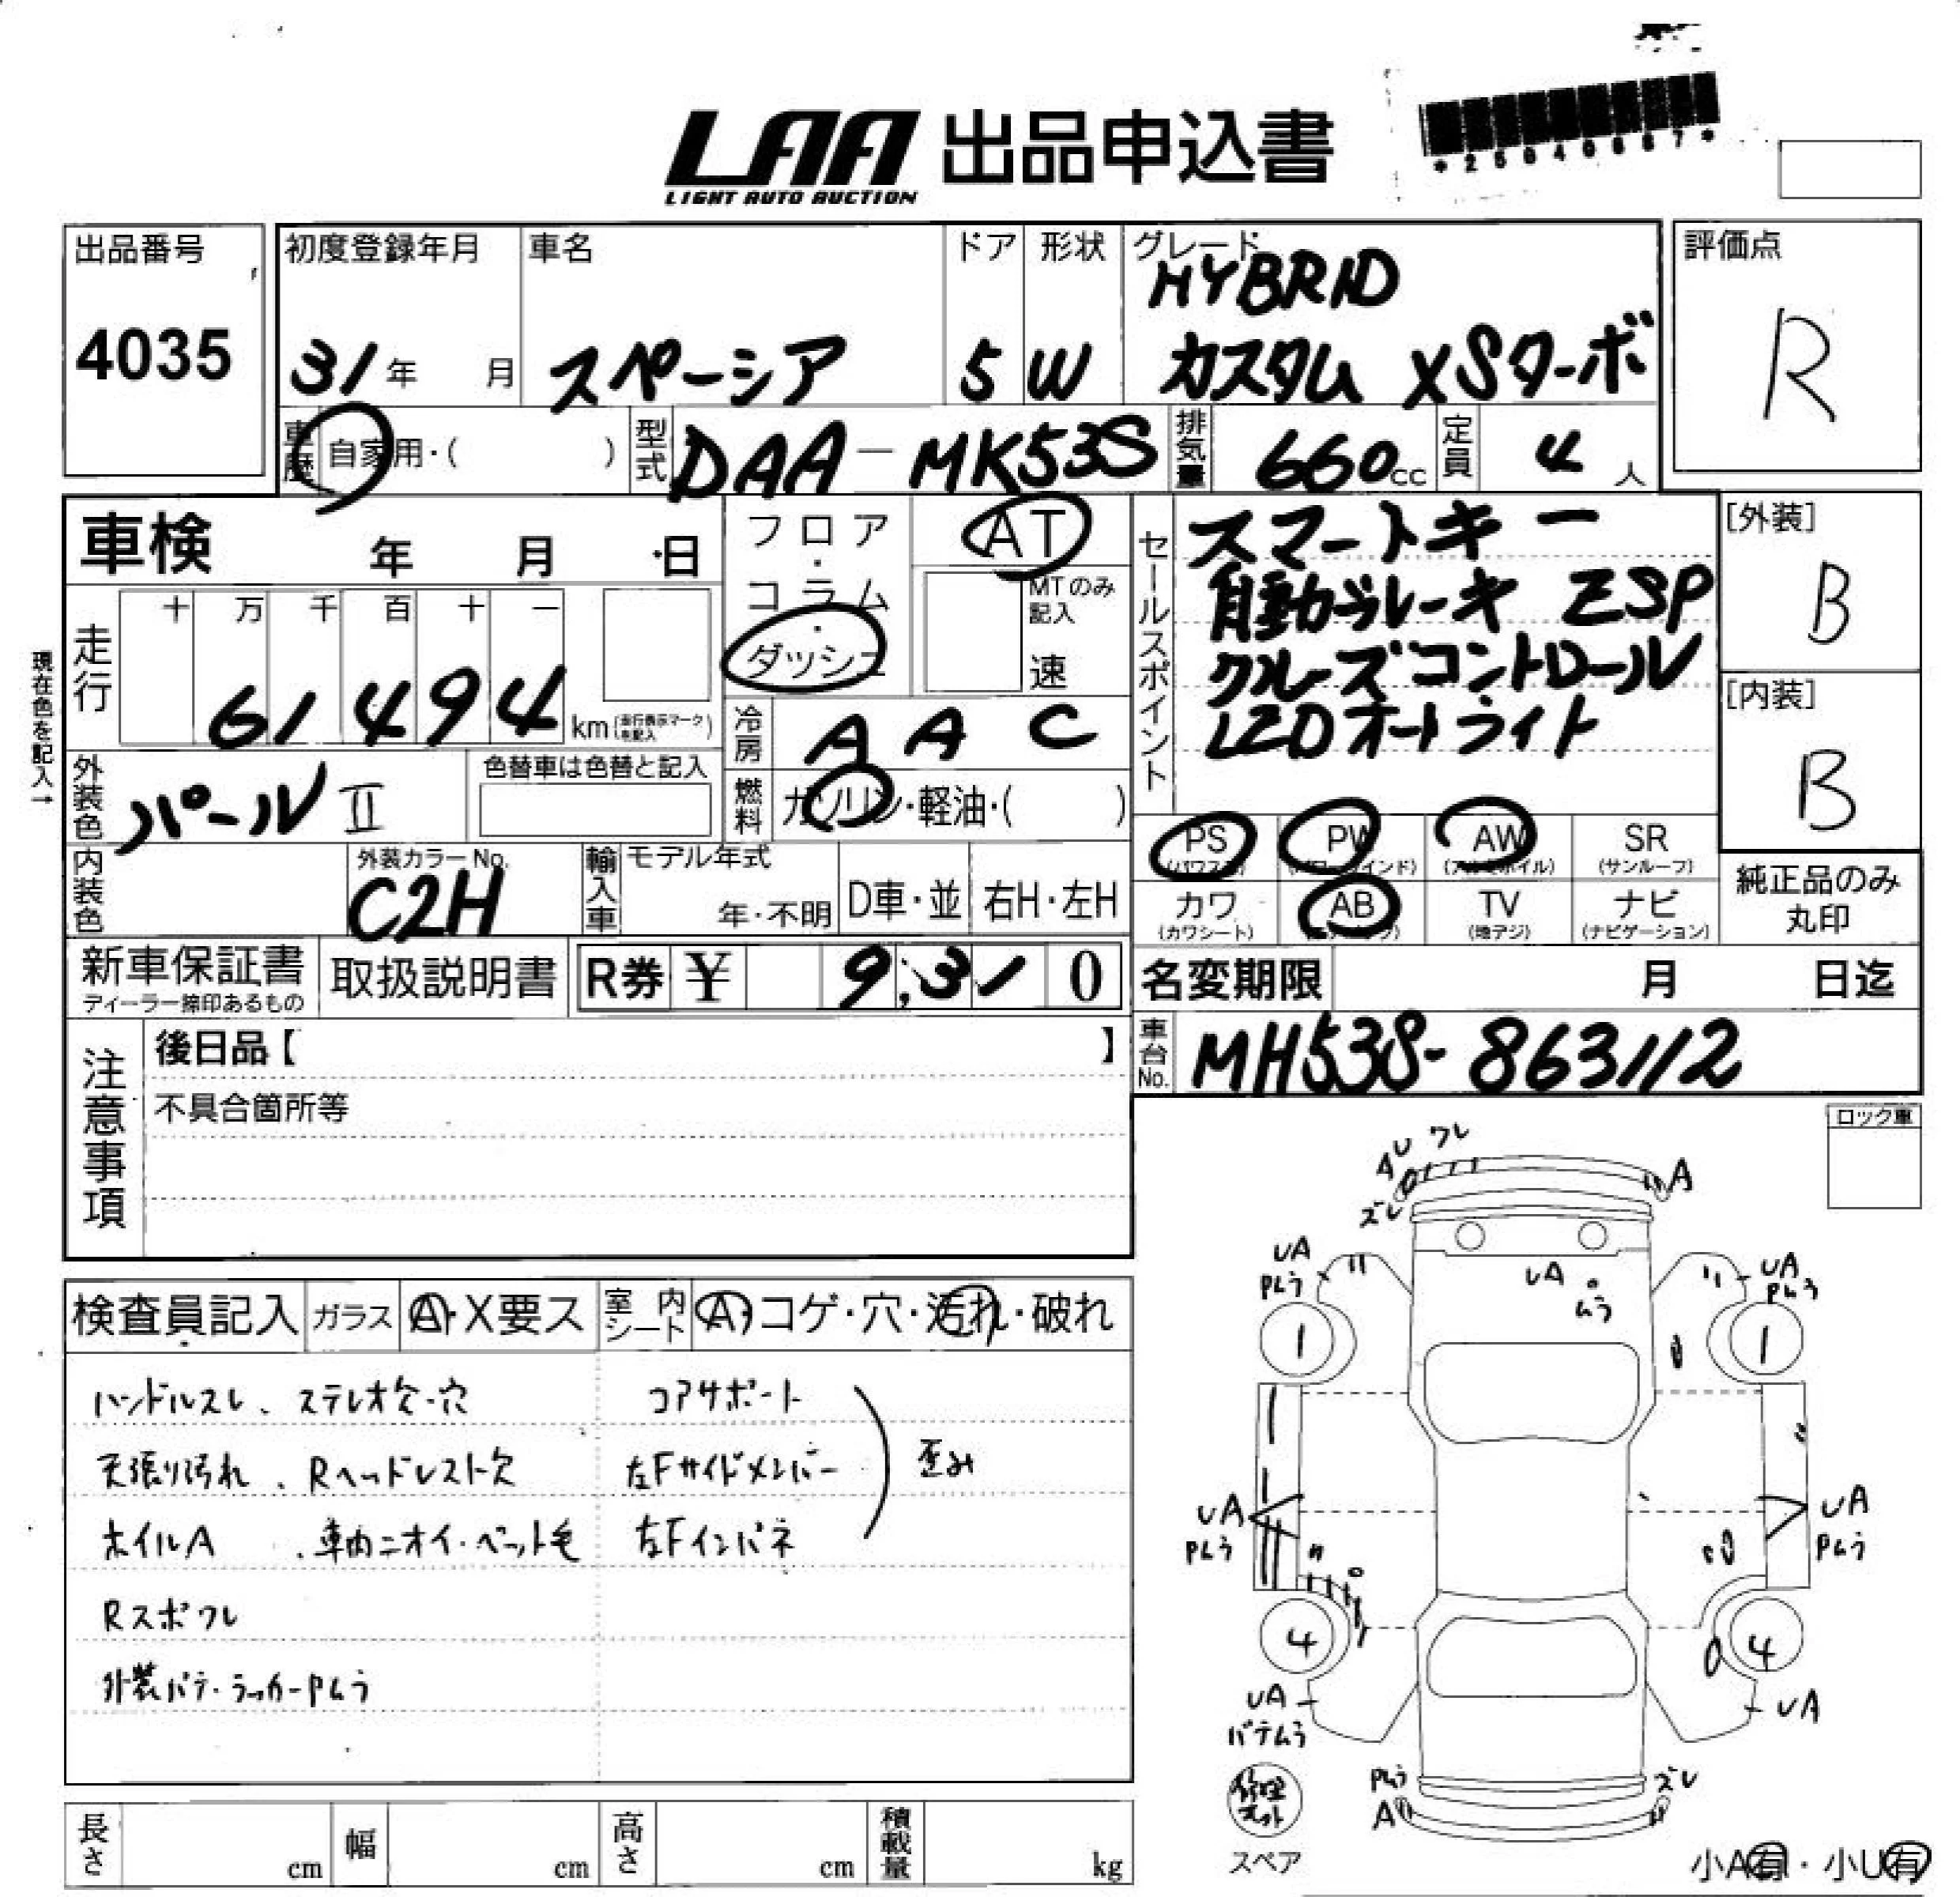 LAA 出品申込書
LIGHT AUTO AUCTION
*25040687*
出品番号
4035
初度登録年月
31年 月
車名
スペーシア
ドア
5
形状
W
グレード
HYBRID
カスタム XSターボ
評価点
R
車歴
自家用・( )
型式
DAA-MK53S
排気量
660cc
定員
4人
車検 年 月 日
フロア・コラム・ダッシュ
AT
MTのみ記入
速
セールスポイント
スマートキー
自動ブレーキ ESP
クルーズコントロール
LEDオートライト
[外装]
B
[内装]
B
現在色を記入→
走行
十 万 千 百 十 一
61494 km (走行表示マークを記入)
冷房
AAC
外装色
パールII
色替車は色替と記入
燃料
ガソリン・軽油・( )
PS
(パワステ)
PW
(パワーウインド)
AW
(アルミホイル)
SR
(サンルーフ)
カワ
(カワシート)
AB
(エアーバッグ)
TV
(地デジ)
ナビ
(ナビゲーション)
純正品のみ
丸印
内装色
外装カラーNo.
C2H
輸入車
モデル年式
年・不明
D車・並
右H・左H
新車保証書
ディーラー捺印あるもの
取扱説明書
R券 ¥ 9,310
名変期限 月 日迄
車台No.
MH53S-863112
注意事項
後日品【 】
不具合箇所等
ロック車
検査員記入
ガラス
A・X要ス
室内シート
A・コゲ・穴・汚れ・破れ
ハンドルスレ、ステレオ欠・穴
天張り汚れ、Rヘッドレスト欠
ホイルA、車内ニオイ・ペット毛
Rスポワレ
外装パテ・ラッカーPムラ
コアサポート
左Fサイドメンバー
左Fインパネ
歪み
AU ワレ
ズレ
A
UA
Pムラ
1
UA
ムラ
UA
Pムラ
1
UA
Pムラ
UA
Pムラ
4
4
UA
パテムラ
UA
修理キット
スペア
Pムラ
A
ズレ
小A有・小U有
長さ cm
幅 cm
高さ cm
積載量 kg